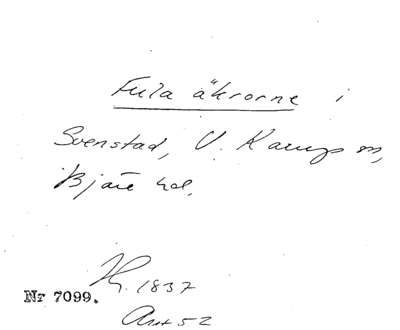 Fula åkrorne i
Svenstad, V. Karup sn,
Bjäre hd.
1837
Nr 7099.
Akt 52